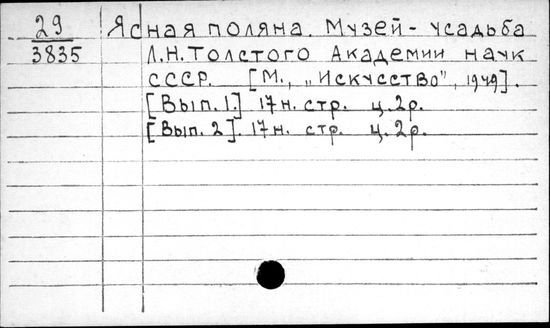 29 Ясная поляна. Музей-усадьба
3835 Л.Н.Толстого Академии наук
СССР. [М., „Искусство", 1949].
[Вып. 1.] 17н. стр. ц. 2р.
[Вып. 2]. 17н. стр. ц. 2р.